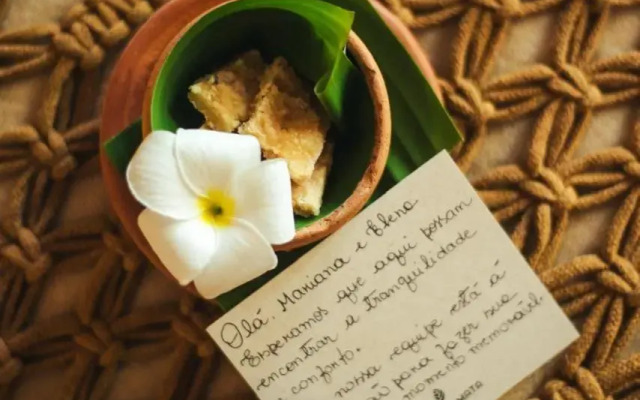 Olá, Mariana e Elena
Esperamos que aqui possam
encontrar a tranquilidade
e conforto.
nossa equipe está à
para fazer sua
momento memorável.